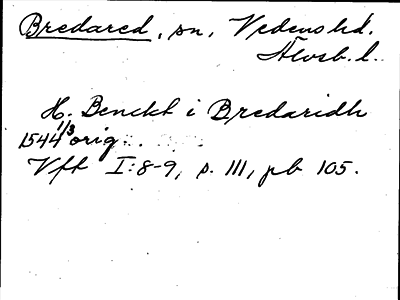 Bredared, sn, Vedens hd.
Älvsb. l.
H. Benckt i Bredaridh
1544 1/3 orig.
Vft I:8-9, s. 111, pb 105.